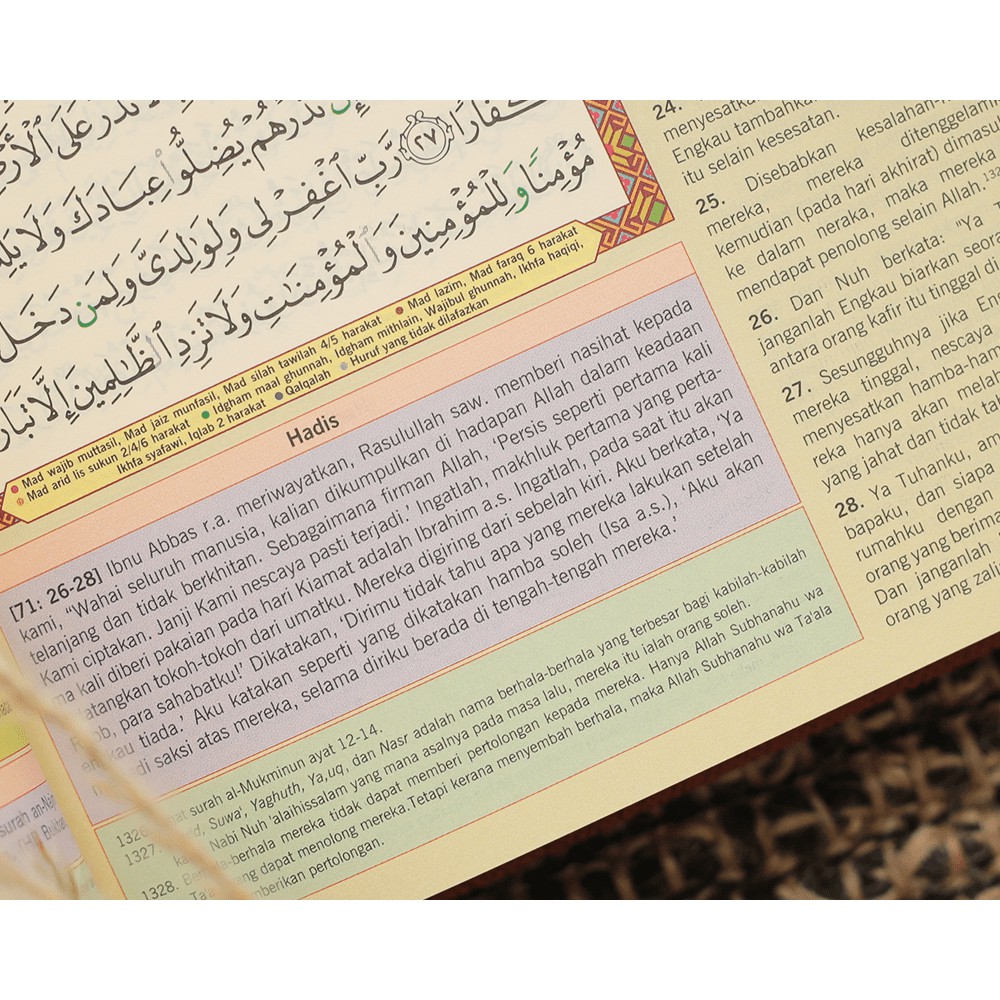 تَذَرْ عَلَى ٱلْأَرْضِ
إِن تَذَرْهُمْ يُضِلُّوا۟ عِبَادَكَ وَلَا
كَفَّارًا ٢٧ رَّبِّ ٱغْفِرْ لِى وَلِوَٰلِدَىَّ وَلِمَن دَخَلَ
مُؤْمِنًا وَلِلْمُؤْمِنِينَ وَٱلْمُؤْمِنَٰتِ وَلَا تَزِدِ ٱلظَّٰلِمِينَ إِلَّا
Mad wajib muttasil, Mad jaiz munfasil, Mad silah tawilah 4/5 harakat Mad lazim, Mad faraq 6 harakat
Mad arid lis sukun 2/4/6 harakat Idgham maal ghunnah, Idgham mithlain, Wajibul ghunnah, Ikhfa haqiqi,
Ikhfa syafawi, Iqlab 2 harakat Qalqalah Huruf yang tidak dilafazkan
Hadis
[71: 26-28] Ibnu Abbas r.a. meriwayatkan, Rasulullah saw. memberi nasihat kepada
kami, "Wahai seluruh manusia, kalian dikumpulkan di hadapan Allah dalam keadaan
telanjang dan tidak berkhitan. Sebagaimana firman Allah, 'Persis seperti pertama kali
Kami ciptakan. Janji Kami nescaya pasti terjadi.' Ingatlah, makhluk pertama yang perta-
ma kali diberi pakaian pada hari Kiamat adalah Ibrahim a.s. Ingatlah, pada saat itu akan
atangkan tokoh-tokoh dari umatku. Mereka digiring dari sebelah kiri. Aku berkata, 'Ya
b, para sahabatku!' Dikatakan, 'Dirimu tidak tahu apa yang mereka lakukan setelah
kau tiada.' Aku katakan seperti yang dikatakan hamba soleh (Isa a.s.), 'Aku akan
di saksi atas mereka, selama diriku berada di tengah-tengah mereka.'
1326. at surah al-Mukminun ayat 12-14.
1327. d, Suwa', Yaghuth, Ya,uq, dan Nasr adalah nama berhala-berhala yang terbesar bagi kabilah-kabilah
Nabi Nuh 'alaihissalam yang mana asalnya pada masa lalu, mereka itu ialah orang soleh.
1328. Be la-berhala mereka tidak dapat memberi pertolongan kepada mereka. Hanya Allah Subhanahu wa
Ta'a ng dapat menolong mereka.Tetapi kerana menyembah berhala, maka Allah Subhanahu wa Ta'ala
mberikan pertolongan.
24.
menyesatka
Engkau tambahkan
itu selain kesesatan.
25. Disebabkan kesalahan-
mereka, mereka ditenggelam
kemudian (pada hari akhirat) dimasu
ke dalam neraka, maka mereka
mendapat penolong selain Allah.
26. Dan Nuh berkata: "Ya
janganlah Engkau biarkan seora
antara orang kafir itu tinggal di
27. Sesungguhnya jika En
mereka tinggal, nescaya
menyesatkan hamba-ham
reka hanya akan mela
yang jahat dan tidak ta
28. Ya Tuhanku, am
bapaku, dan siapa
rumahku dengan
orang yang berima
Dan janganlah
orang yang zali
surah an-Naj